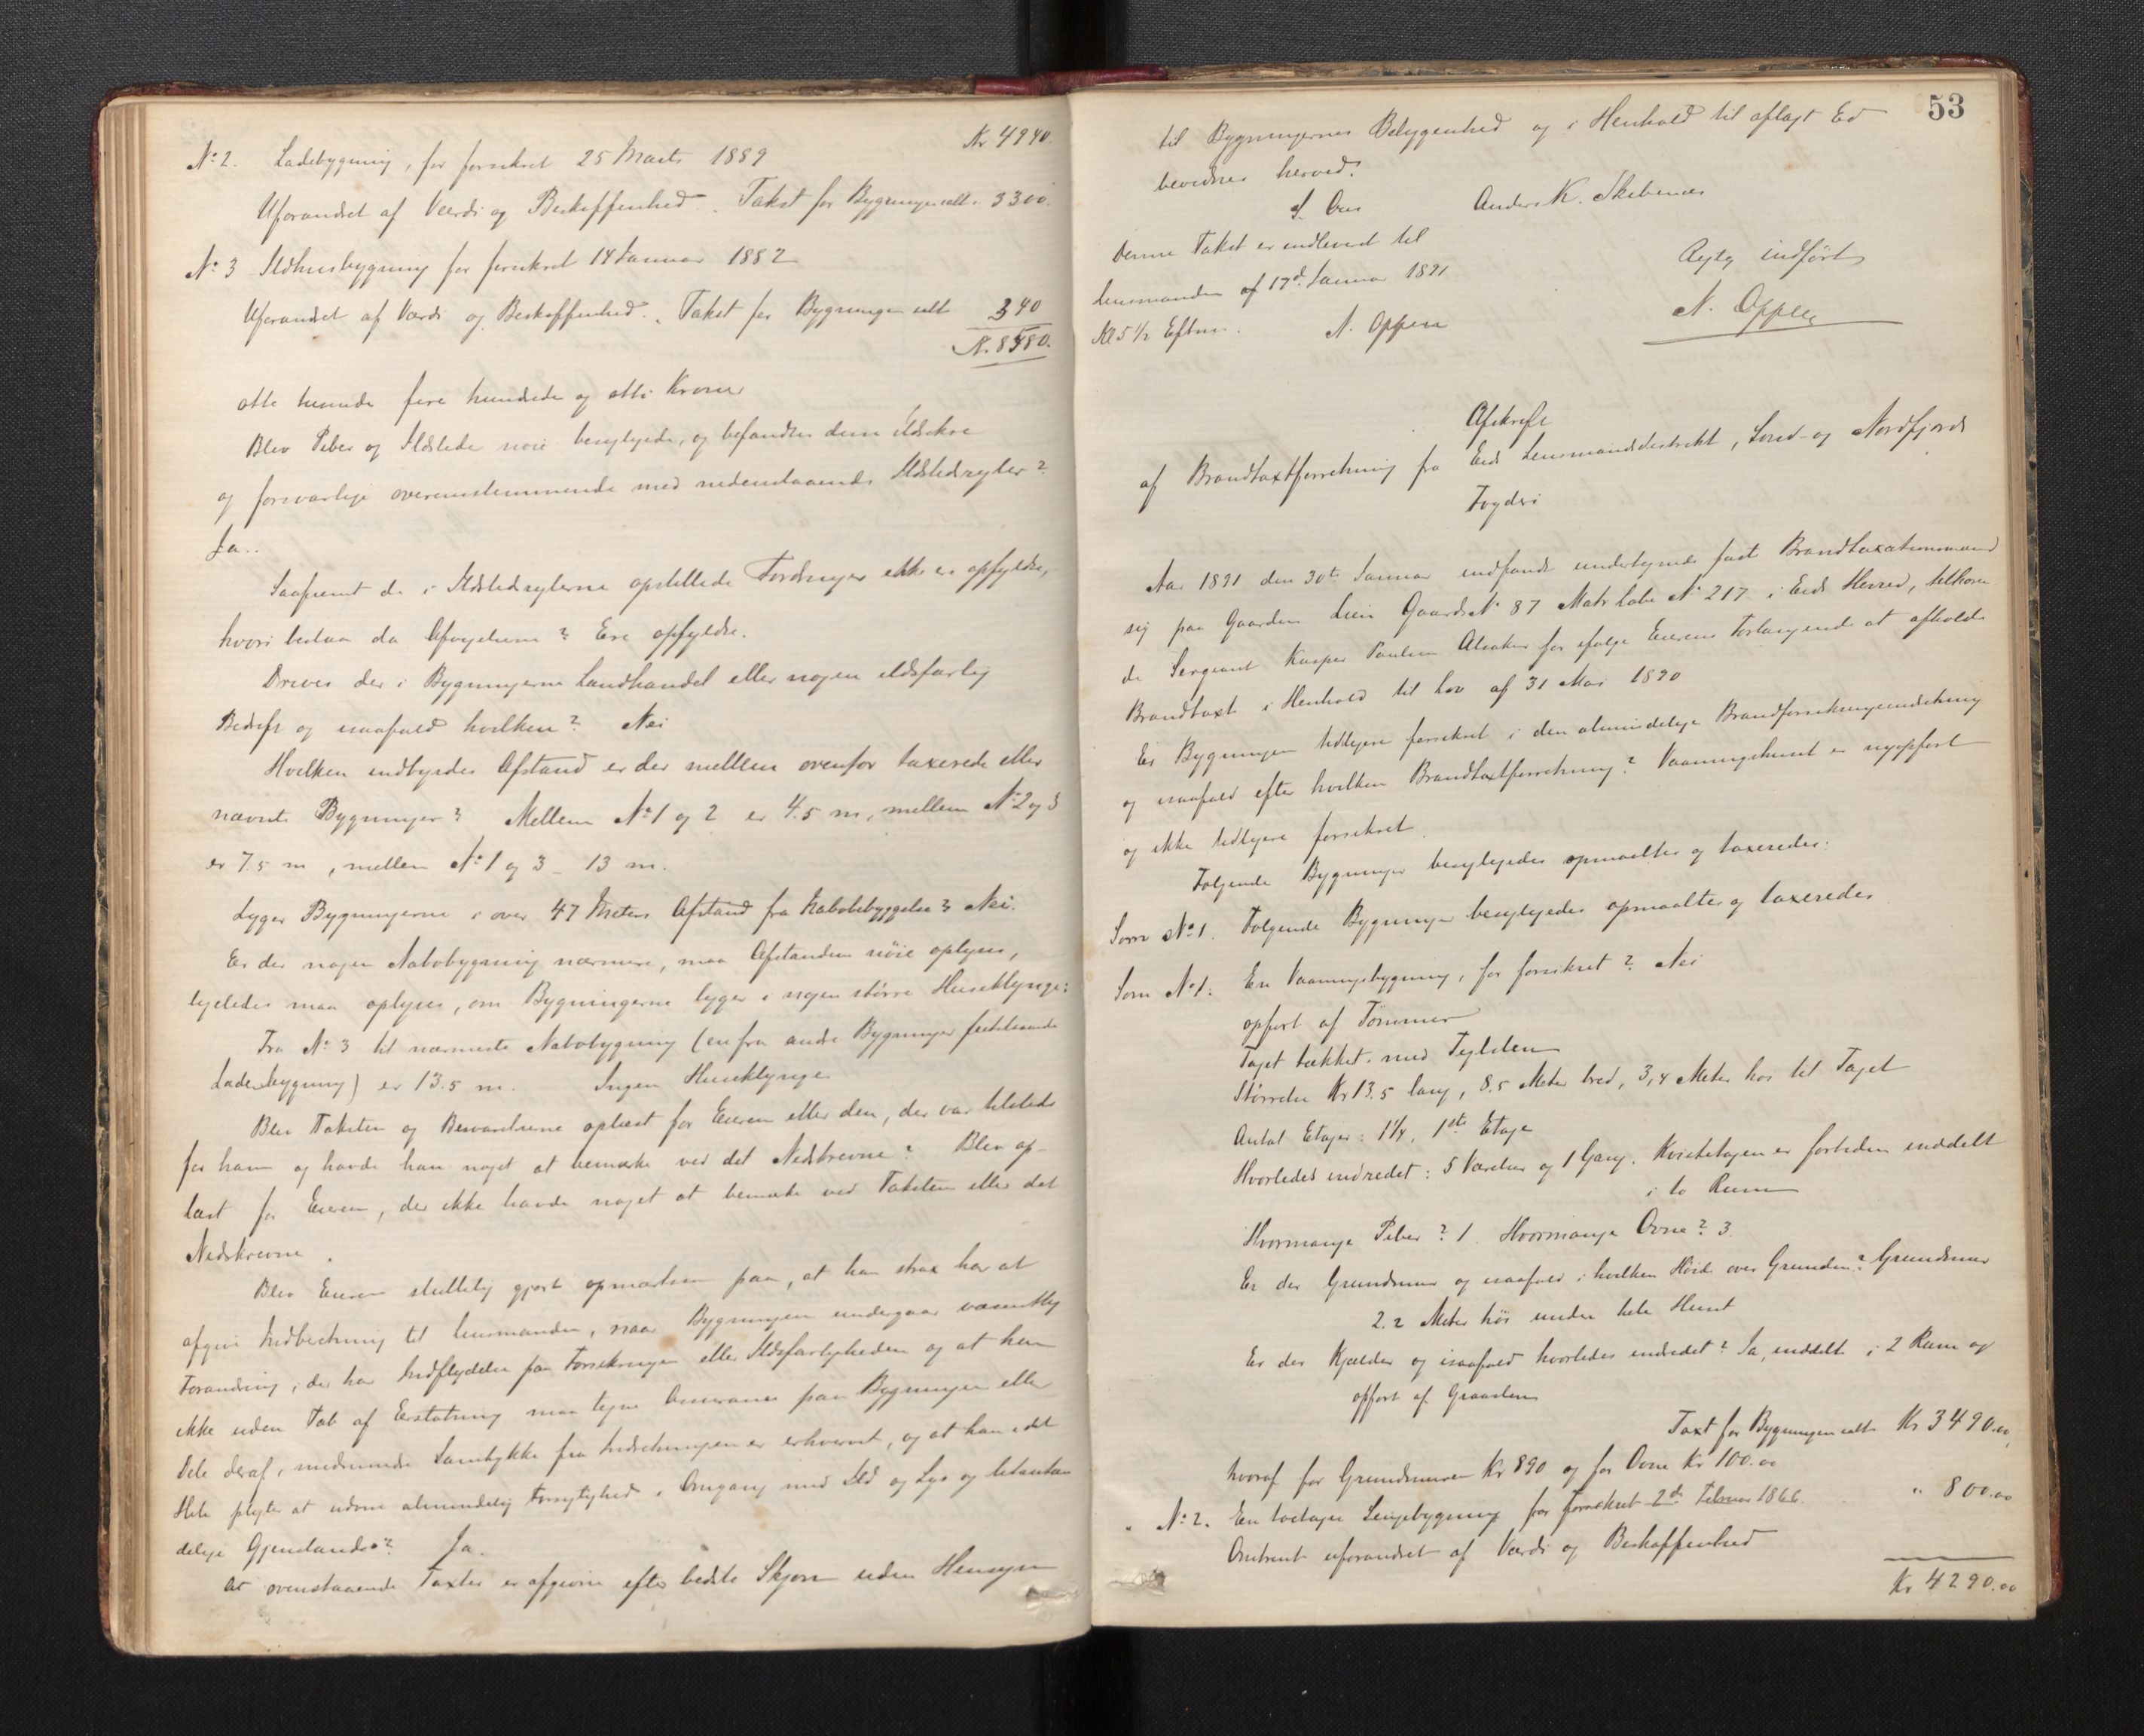 Kr 4940.
No 2. Ladebygning, før forsikret 25 Marts 1889
Uforandret af Værdi og Beskaffenhed. Takst for Bygningen ialt " 3300.
No 3 Ildhusbygning før forsikret 14 Januar 1882
Uforandret af Værdi og Beskaffenhed. Takst for Bygningen ialt 340
Kr. 8580.
otte tusinde fire hundrede og otti Kroner
Blev Piber og Ildsteder nøie besigtigede, og befandtes disse ildsikre
og forsvarlige overensstemmende med nedenstaaende Ildstedsregler?
Ja..
Saafremt de i Ildstedsreglerne opstillede Fordringer ikke er opfyldte,
hvori bestaa da Afvigelserne? Ere opfyldte.
Drives der i Bygningerne Landhandel eller nogen ildsfarlig
Bedrift og isaafald hvilken? Nei
Hvilken indbyrdes Afstand er der mellem ovenfor taxerede eller
nævnte Bygninger? Mellem No 1 og 2 er 4.5 m, mellem No 2 og 3
er 7.5 m, mellem No 1 og 3 - 13 m.
Ligger Bygningerne i over 47 Meters Afstand fra Nabobebyggelse? Nei.
Er der nogen Nabobygning nærmere, maa Afstanden nøie oplyses,
ligeledes maa oplyses, om Bygningerne ligger i nogen større Huseklynge:
Fra No 3 til nærmeste Nabobygning (en fra andre Bygninger fritstaaende
Ladebygning) er 13.5 m. Ingen Huseklynge
Blev Taksten og Besvarelserne oplæst for Eieren eller den, der var tilstede
for ham og havde han noget at bemærke ved det Nedskrevne? Blev op-
læst for Eieren, der ikke havde noget at bemærke ved Taksten eller det
Nedskrevne.
Blev Eieren skriftlig gjort opmærksom paa, at han strax har at
afgive Indberetning til Lensmanden, naar Bygningen undergaar væsentlig
Forandring, der har Indflydelse paa Forsikringen eller Ildsfarligheden og at han
ikke uden Tab af Erstatning maa tegne Assurance paa Bygningen eller
Dele deraf, medmindre Samtykke fra Indretningen er erhvervet, og at han i det
Hele pligter at udvise almindelig Forsigtighed i Omgang med Ild og Lys og letantæn
delige Gjenstande? Ja.
At ovenstaaende Taxter er afgivne efter bedste Skjøn uden Hensyn
53
til Bygningernes Beliggenhed og i Henhold til aflagt Ed
bevidnes herved.
Anders K. Skibenes
Denne Takst er indleveret til
Lensmanden af 17d Januar 1891
Kl 5 1/2 Efterm. N. Oppen
Rigtig indført
N. Oppen
Afskrift
af Brandtaxtforretning fra Eids Lensmandsdistrikt, Sønd- og Nordfjords
Fogderi
Aar 1891 den 30te Januar indfandt undertegnede faste Brandtaxationsmænd
sig paa Gaarden Lien Gaards No 87 Matr Løbe No 217 i Eids Herred, tilhøren
de Sergeant Kasper Paulsen Alsaker for ifølge Eierens Forlangende at afholde
Brandtaxt i Henhold til Lov af 31 Mai 1890
Er Bygningen tidligere forsikret i den almindelige Brandforsikringsindretning
og isaafald efter hvilken Brandtaxtforretning? Vaaningshuset er nyopført
og ikke tidligere forsikret.
Følgende Bygninger besigtigedes opmaaltes og taxeredes:
Som No 1. Følgende Bygninger besigtigedes opmaaltes og taxeredes
Som No 1: En Vaaningsbygning, før forsikret? Nei
opført af Tømmer
Taget tækket med Teglsten
Størrelse Kr 13.5 lang, 8.5 Meter bred, 3,4 Meter høi til Taget
Antal Etager: 1 1/4, 1ste Etage
Hvorledes indredet: 5 Værelser og 1 Gang. Kvistetagen er fortiden inddelt
i to Rum
Hvormange Piber? 1. Hvormange Ovne? 3.
Er der Grundmur og isaafald i hvilken Høide over Grunden? Grundmur
2.2 Meter høi under hele Huset
Er der Kjælder og isaafald hvorledes indredet? Ja, inddelt i 2 Rum og
opført af Graasten
Taxt for Bygningen ialt Kr 3490.00
hvoraf for Grundmuren Kr 890 og for Ovne Kr 100.00
" No 2. En toetages Længebygning før forsikret 2de Februar 1866. " 800.00
Omtrent uforandret af Værdi og Beskaffenhed
Kr 4290.00